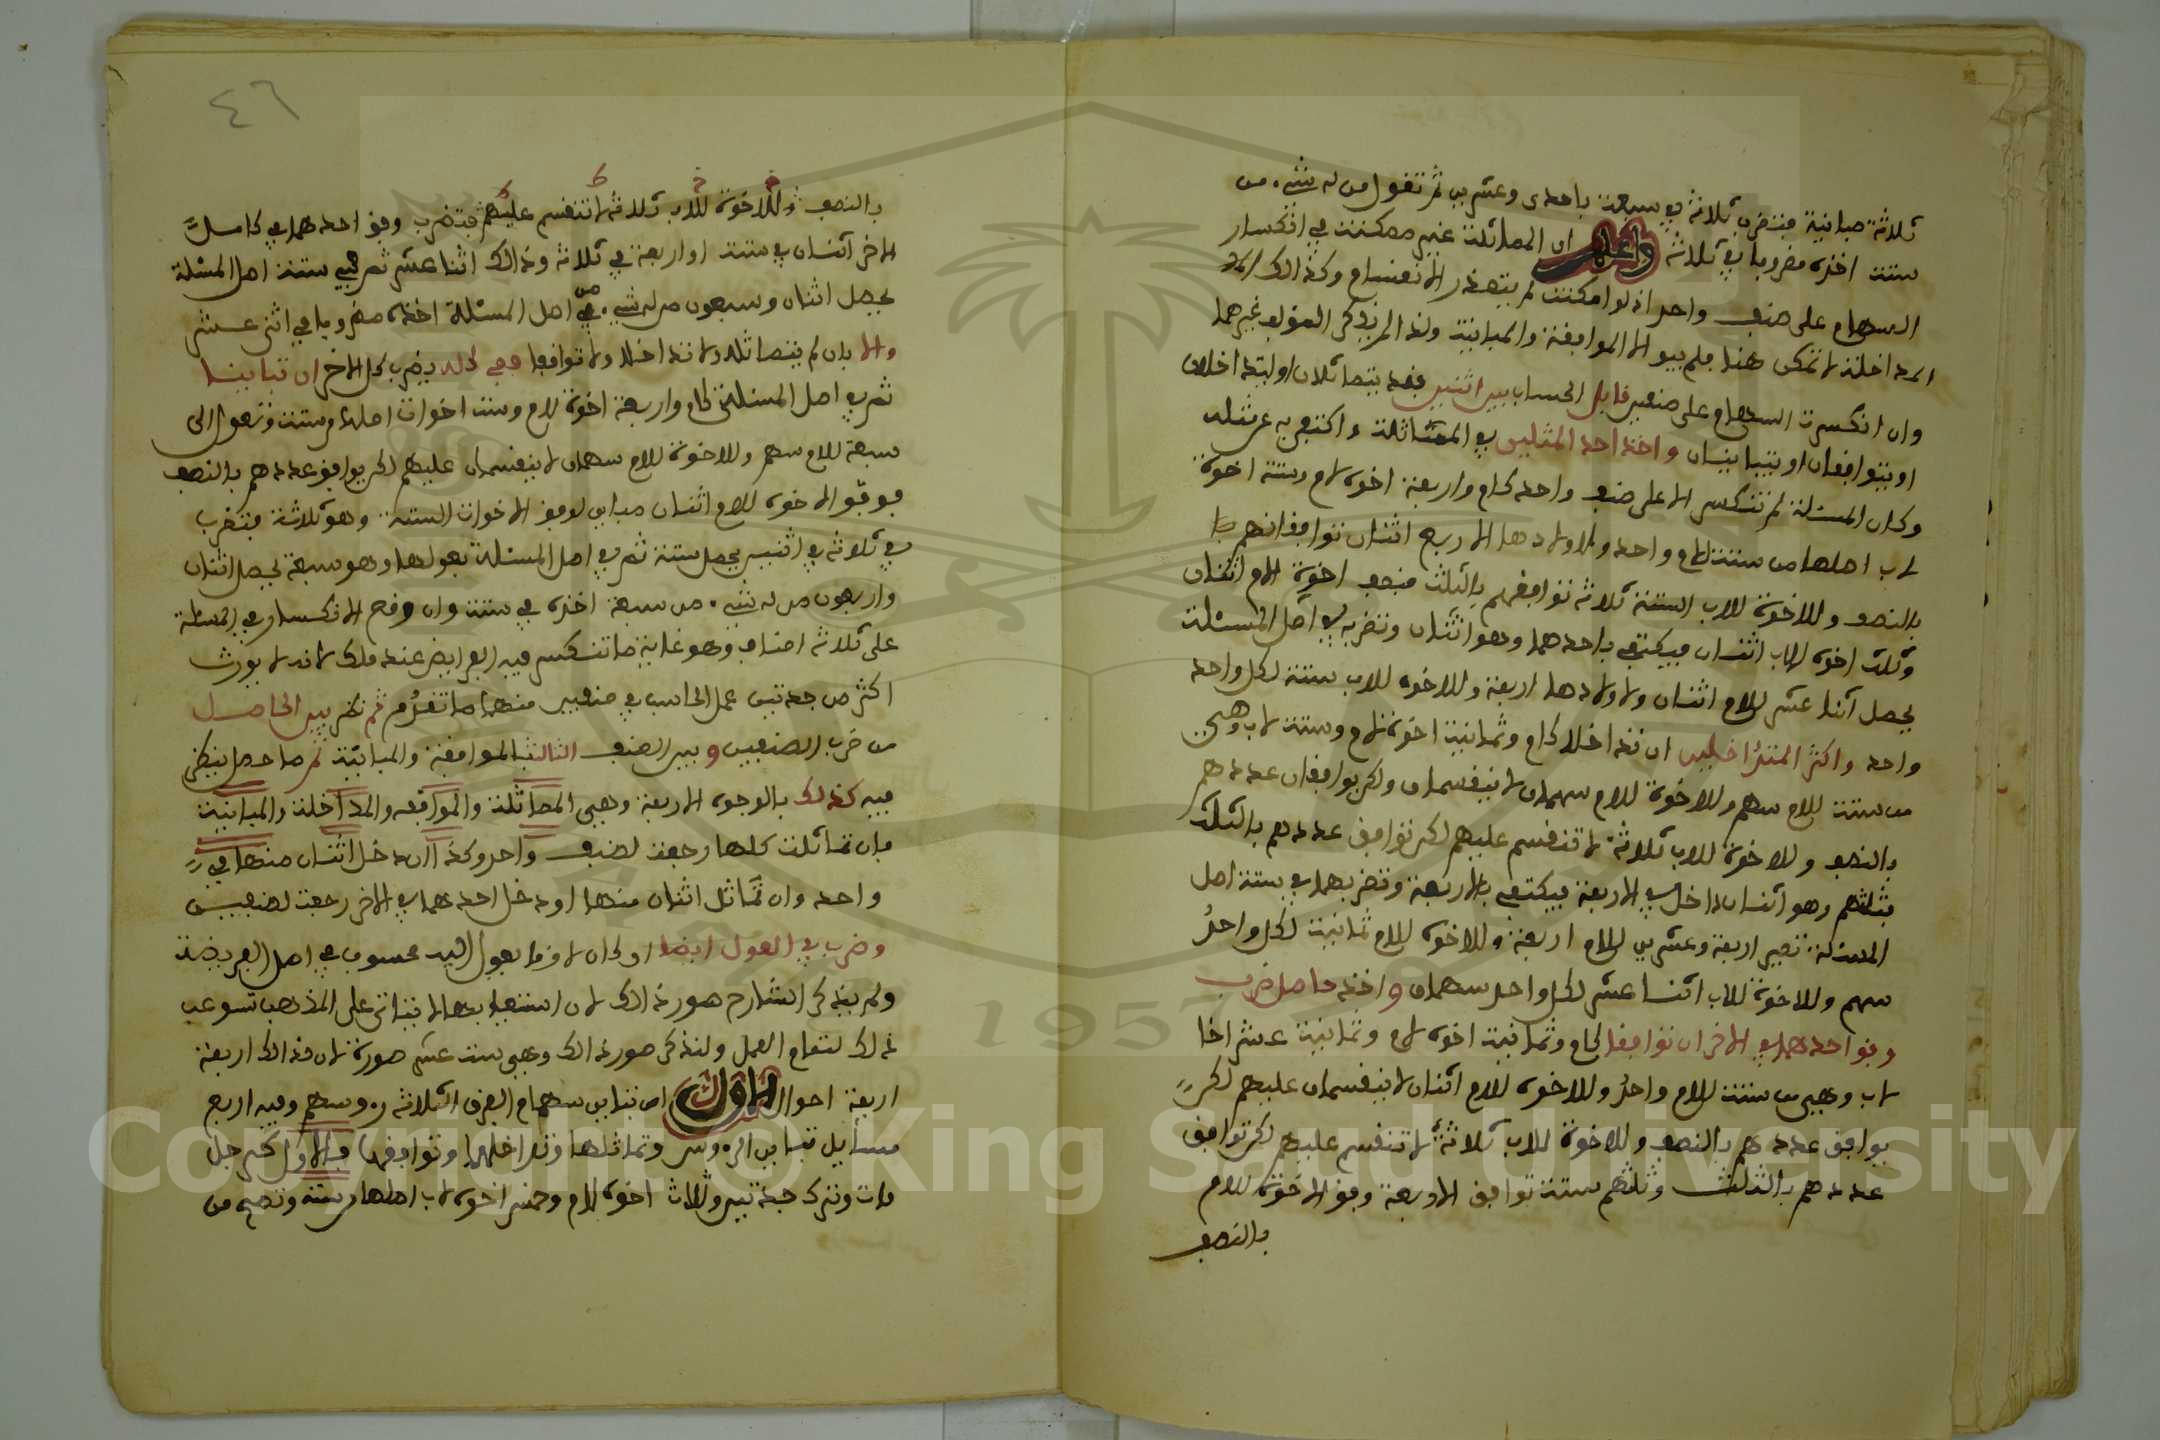 ثلاثة مباينة فتضرب ثلاثة في سبعة باحدى وعشرين ثم تقول من له شيء من
ستة اخذه مضروبا في ثلاثة واعلم ان المماثلة غير ممكنة في انكسار
السهام على صنف واحد اذ لو امكنت لم يتعذر الانقسام وكذالك
المداخلة لا تمكن هنا فلم يبق الا الموافقة والمباينة ولذا لم يذكر المؤلف غيرهما
وان انكسرت السهام على صنفين قابل الحساب بين اثنين فقد يتماثلان او يتداخلان
او يتوافقان او يتباينان واخذ احد المثلين في المماثلة واكتفي به عن مثله
وكان المسئلة لم تنكسر الا على صنف واحد كام واربعة اخوة لام وستة اخوة
لاب اصلها من ستة للام واحد ولاولادها الاربع اثنان توافقانهم
بالنصف وللاخوة للاب الستة ثلاثة توافقهم بالثلث فنصف اخوة الام اثنان
وثلث اخوة الاب اثنان فيكتفي باحدهما وهو اثنان وتضربه في اصل المسئلة
يحصل اثنا عشر للام اثنان ولاولادها اربعة وللاخوة للاب ستة لكل واحد
واحد واكثر المتداخلين ان تداخلا كام وثمانية اخوة لام وستة لاب وهي
من ستة للام سهم وللاخوة للام سهمان لا ينقسمان ولكن يوافقان عددهم
بالنصف وللاخوة للاب ثلاثة لا تنقسم عليهم لكن توافق عددهم بالثلث
فثلثهم وهو اثنان داخل في الاربعة فيكتفي بالاربعة وتضربها في ستة اصل
المسئلة تصير اربعة وعشرين للام اربعة وللاخوة للام ثمانية لكل واحد
سهم وللاخوة للاب اثنا عشر لكل واحد سهمان واخذ حاصل ضرب
وفق احدهما في الاخر ان توافقا كام وثمانية اخوة لام وثمانية عشر اخا
لاب وهي من ستة للام واحد وللاخوة للام اثنان لا ينقسمان عليهم لكن
يوافق عددهم بالنصف وللاخوة للاب ثلاثة لا تنقسم عليهم لكن توافق
عددهم بالثلث وثلثهم ستة توافق الاربعة وفق الاخوة للام
بالنصف
٤٦
بالنصف وللاخوة للاب ثلاثة لا تنقسم عليهم فتضرب وفق احدهما في كامل
الاخر اثنان في ستة او اربعة في ثلاثة وذالك اثنا عشر ثم هي في ستة اصل المسئلة
يحصل اثنان وسبعون من له شيء من اصل المسئلة اخذه مضروبا في اثنى عشر
والا بان لم يتماثلا ولا تداخلا ولا توافقا ففي كله يضرب كل الاخر ان تباينا
ثم في اصل المسئلة كام واربعة اخوة لام وست اخوات اصلها من ستة وتعول الى
سبعة للام سهم وللاخوة للام سهمان لا ينقسمان عليهم لكن يوافق عددهم بالنصف
فوفق الاخوة للام اثنان مباين لوفق الاخوات الستة وهو ثلاثة فتضرب
في ثلاثة في اثنين يحصل ستة ثم في اصل المسئلة بعولها وهو سبعة يحصل اثنان
واربعون من له شيء من سبعة اخذه في ستة وان وقع الانكسار في المسئلة
على ثلاثة اصناف وهو غاية ما تنكسر فيه الفرايض عند ملك لانه لا يورث
اكثر من جدتين عمل الحاسب في صنفين منها ما تقدم ثم نظر بين الحاصل
من ضرب الصنفين وبين الصنف الثالث بالموافقة والمباينة ثم ما حصل ينظر
فيه كذلك بالوجوه الاربعة وهي المماثلة والموافقه والمداخلة والمباينة
فان تماثلت كلها رجعت لصنف واحد وكذا ان دخل اثنان منها في
واحد وان تماثل اثنان منها او دخل احدهما في الاخر رجعت لصنفين
وضرب في العول ايضا ان كان لان ما يعول اليه محسوب في اصل الفريضة
ولم يذكر الشارح صور ذالك لان استيفاءها لا يتاتى على المذهب لتوعب
ذلك لتمام العمل ولنذكر صور ذالك وهي ست عشر صورة لان ذالك اربعة
اربعة احوال الاول ان تباين سهام الفرق الثلاثة رءوسهم وفيه اربع
مسايل تباين الرءوس وتماثلها وتداخلها وتوافقها فالاول كرجل
مات وترك جدتين وثلاث اخوة لام وخمس اخوة لاب اصلها من ستة وتصح من